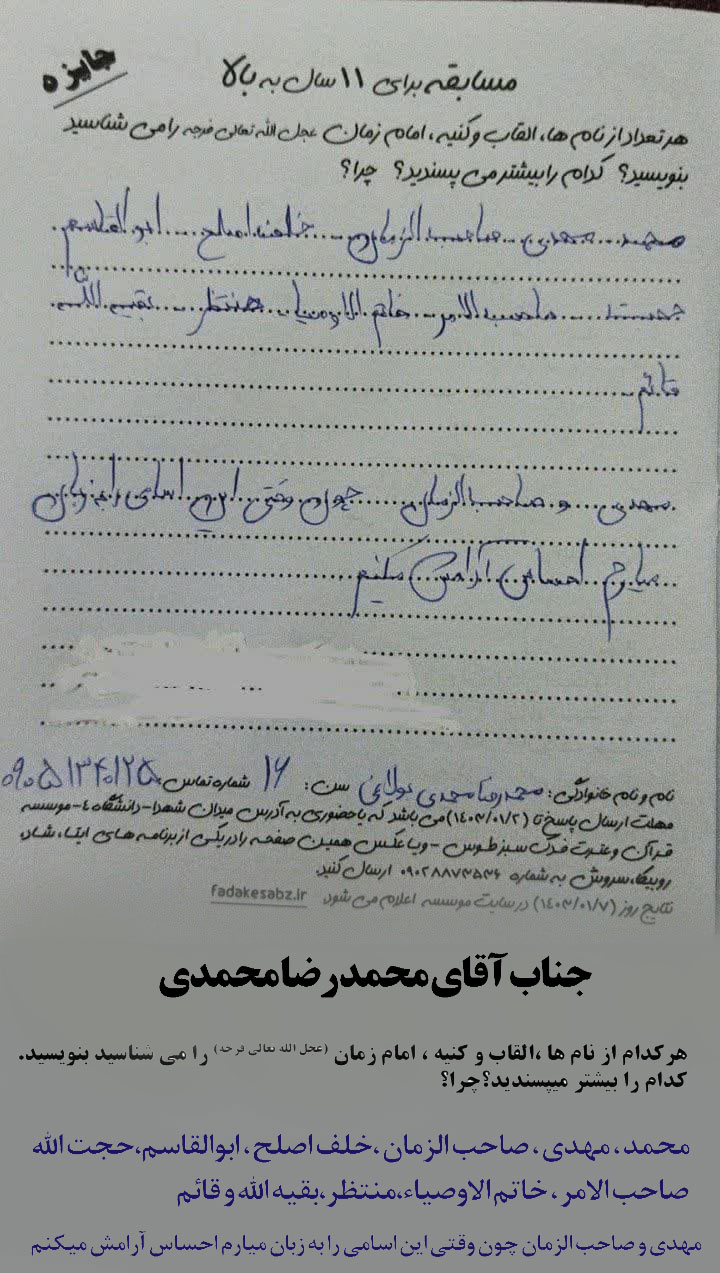 جایزه
مسابقه برای ۱۱ سال به بالا
هر تعداد از نام ها، القاب و کنیه، امام زمان عجل الله تعالی فرجه را می شناسید
بنویسید؟ کدام را بیشتر می پسندید؟ چرا؟
محمد... مهدی... صاحب الزمان... خلف اصلح... ابوالقاسم
حجت الله... صاحب الامر... خاتم الاوصیا... منتظر... بقیه الله
قائم
مهدی... و صاحب الزمان... چون وقتی این اسامی را به زبان
میارم احساس آرامش میکنم
نام و نام خانوادگی: محمدرضا محمدی مولایی سن: ۱۶ شماره تماس: ۰۹۰۵۱۳۴۰۱۲۵
مهلت ارسال پاسخ تا (۱۴۰۳/۰۱/۲) می باشد که یا حضوری به آدرس میدان شهدا-دانشگاه ۴-موسسه
قرآن و عترت فدک سبز طوس - و یا عکس همین صفحه را در یکی از برنامه های ایتا، شاد،
روبیکا، سروش به شماره ۰۹۰۲۸۸۷۳۵۳۶ ارسال کنید.
نتایج روز (۱۴۰۳/۰۱/۷) در سایت موسسه اعلام می شود fadakesabz.ir
جناب آقای محمدرضا محمدی
هرکدام از نام ها ،القاب و کنیه ، امام زمان (عجل الله تعالی فرجه) را می شناسید بنویسید.
کدام را بیشتر میپسندید؟چرا؟
محمد، مهدی، صاحب الزمان، خلف اصلح، ابوالقاسم،حجت الله
صاحب الامر، خاتم الاوصیاء،منتظر،بقیه الله و قائم
مهدی و صاحب الزمان چون وقتی این اسامی را به زبان میارم احساس آرامش میکنم